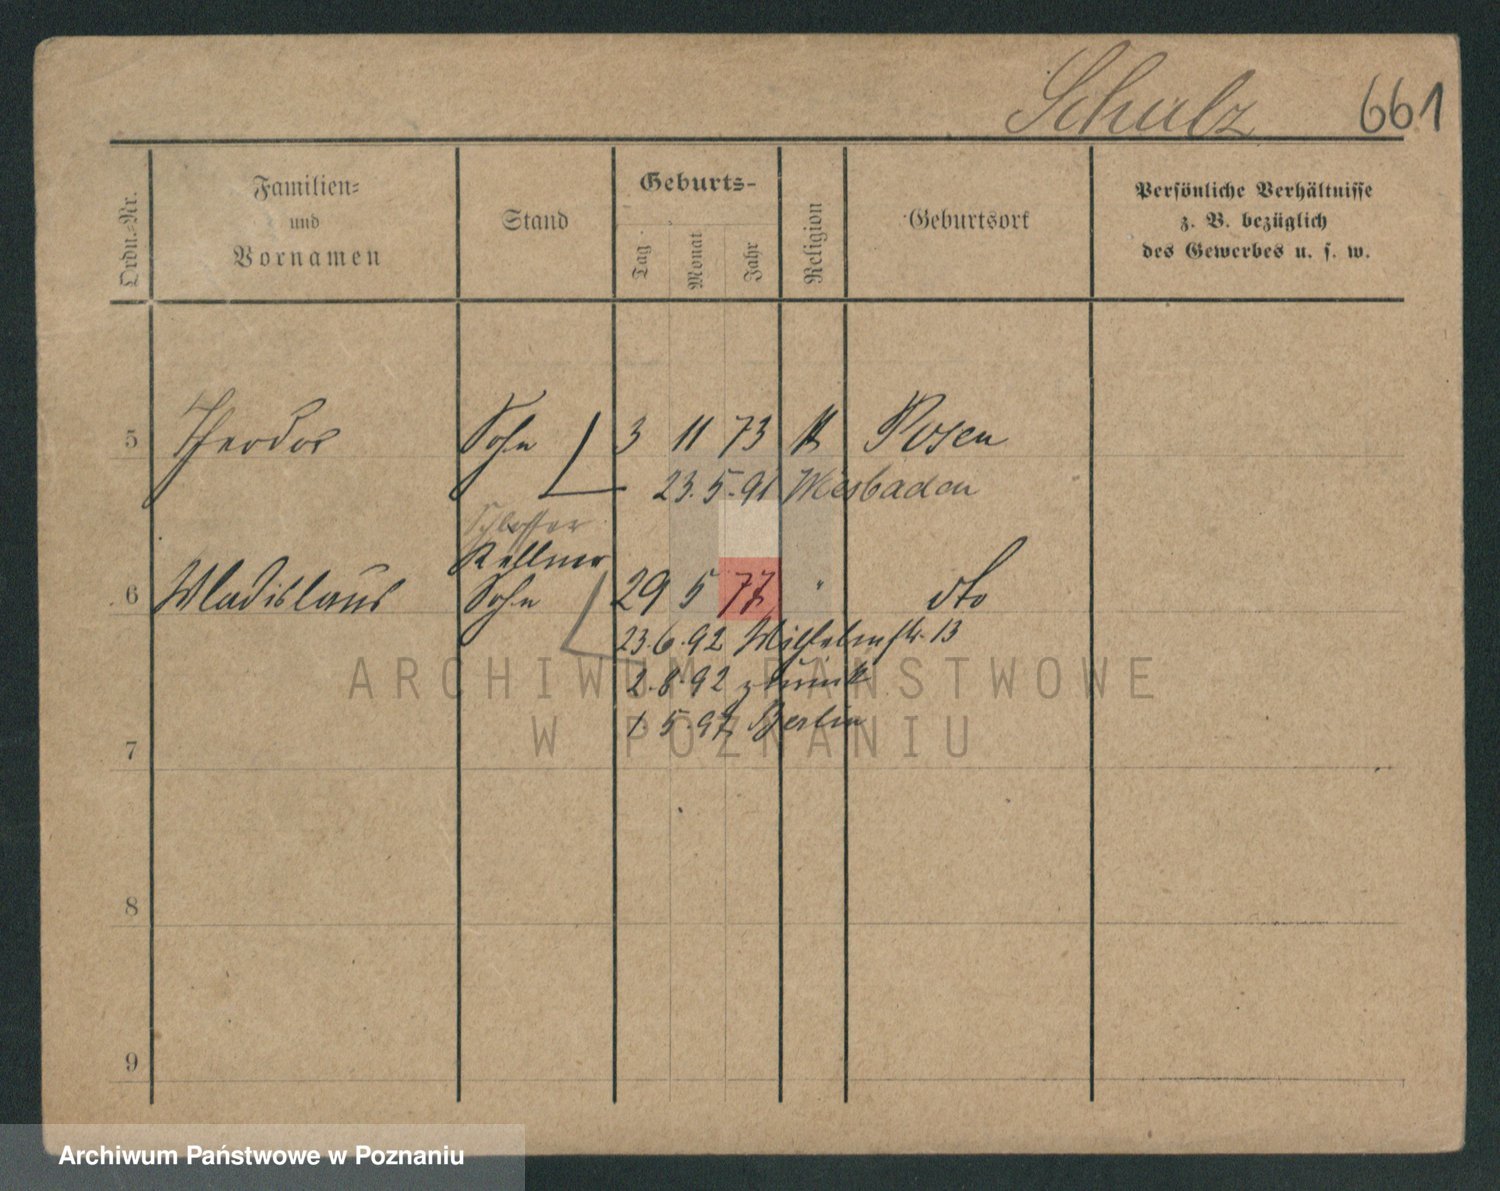 Schulz 661
Ordn.-Nr.
Familien-
und
Vornamen
Stand
Geburts-
Tag
Monat
Jahr
Religion
Geburtsort
Persönliche Verhältnisse
z. B. bezüglich
des Gewerbes u. s. w.
5 Theodor Sohn 3 11 73 K Posen
23.5.91 Wiesbaden
Schlosser
Kellner
6 Wladislaus Sohn 29 5 77 " dto
23.6.92 Wilhelmstr. 13
2.8.92 zurück
1.5.97 Berlin
7
8
9
ARCHIWUM PAŃSTWOWE
W POZNANIU
Archiwum Państwowe w Poznaniu